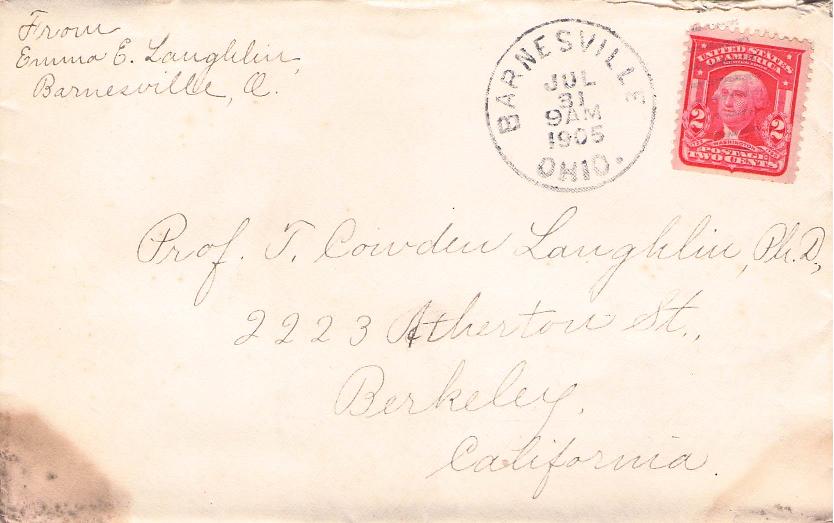 From
Emma E. Laughlin,
Barnesville, O.
BARNESVILLE
JUL
31
9AM
1905
OHIO.
UNITED STATES
OF AMERICA
2 2
WASHINGTON
POSTAGE
TWO CENTS
Prof. T. Cowden Laughlin, Ph.D,
2223 Atherton St.,
Berkeley,
California.